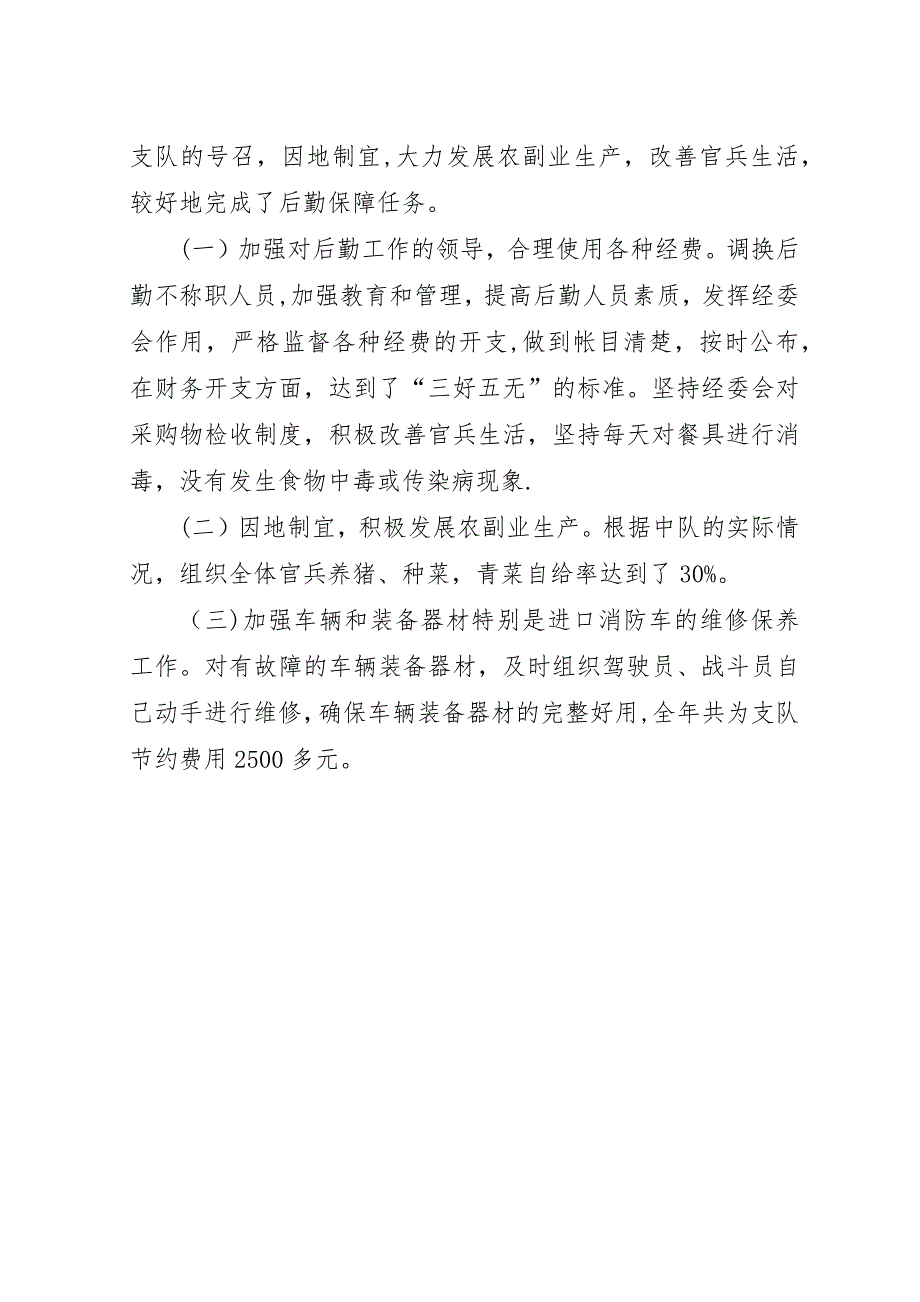 支队的号召，因地制宜,大力发展农副业生产，改善官兵生活，
较好地完成了后勤保障任务。
(一）加强对后勤工作的领导，合理使用各种经费。调换后
勤不称职人员,加强教育和管理，提高后勤人员素质，发挥经委
会作用，严格监督各种经费的开支,做到帐目清楚，按时公布，
在财务开支方面，达到了“三好五无”的标准。坚持经委会对
采购物检收制度，积极改善官兵生活，坚持每天对餐具进行消
毒，没有发生食物中毒或传染病现象.
(二）因地制宜，积极发展农副业生产。根据中队的实际情
况，组织全体官兵养猪、种菜，青菜自给率达到了 30%。
（三)加强车辆和装备器材特别是进口消防车的维修保养
工作。对有故障的车辆装备器材，及时组织驾驶员、战斗员自
己动手进行维修，确保车辆装备器材的完整好用,全年共为支队
节约费用 2500 多元。